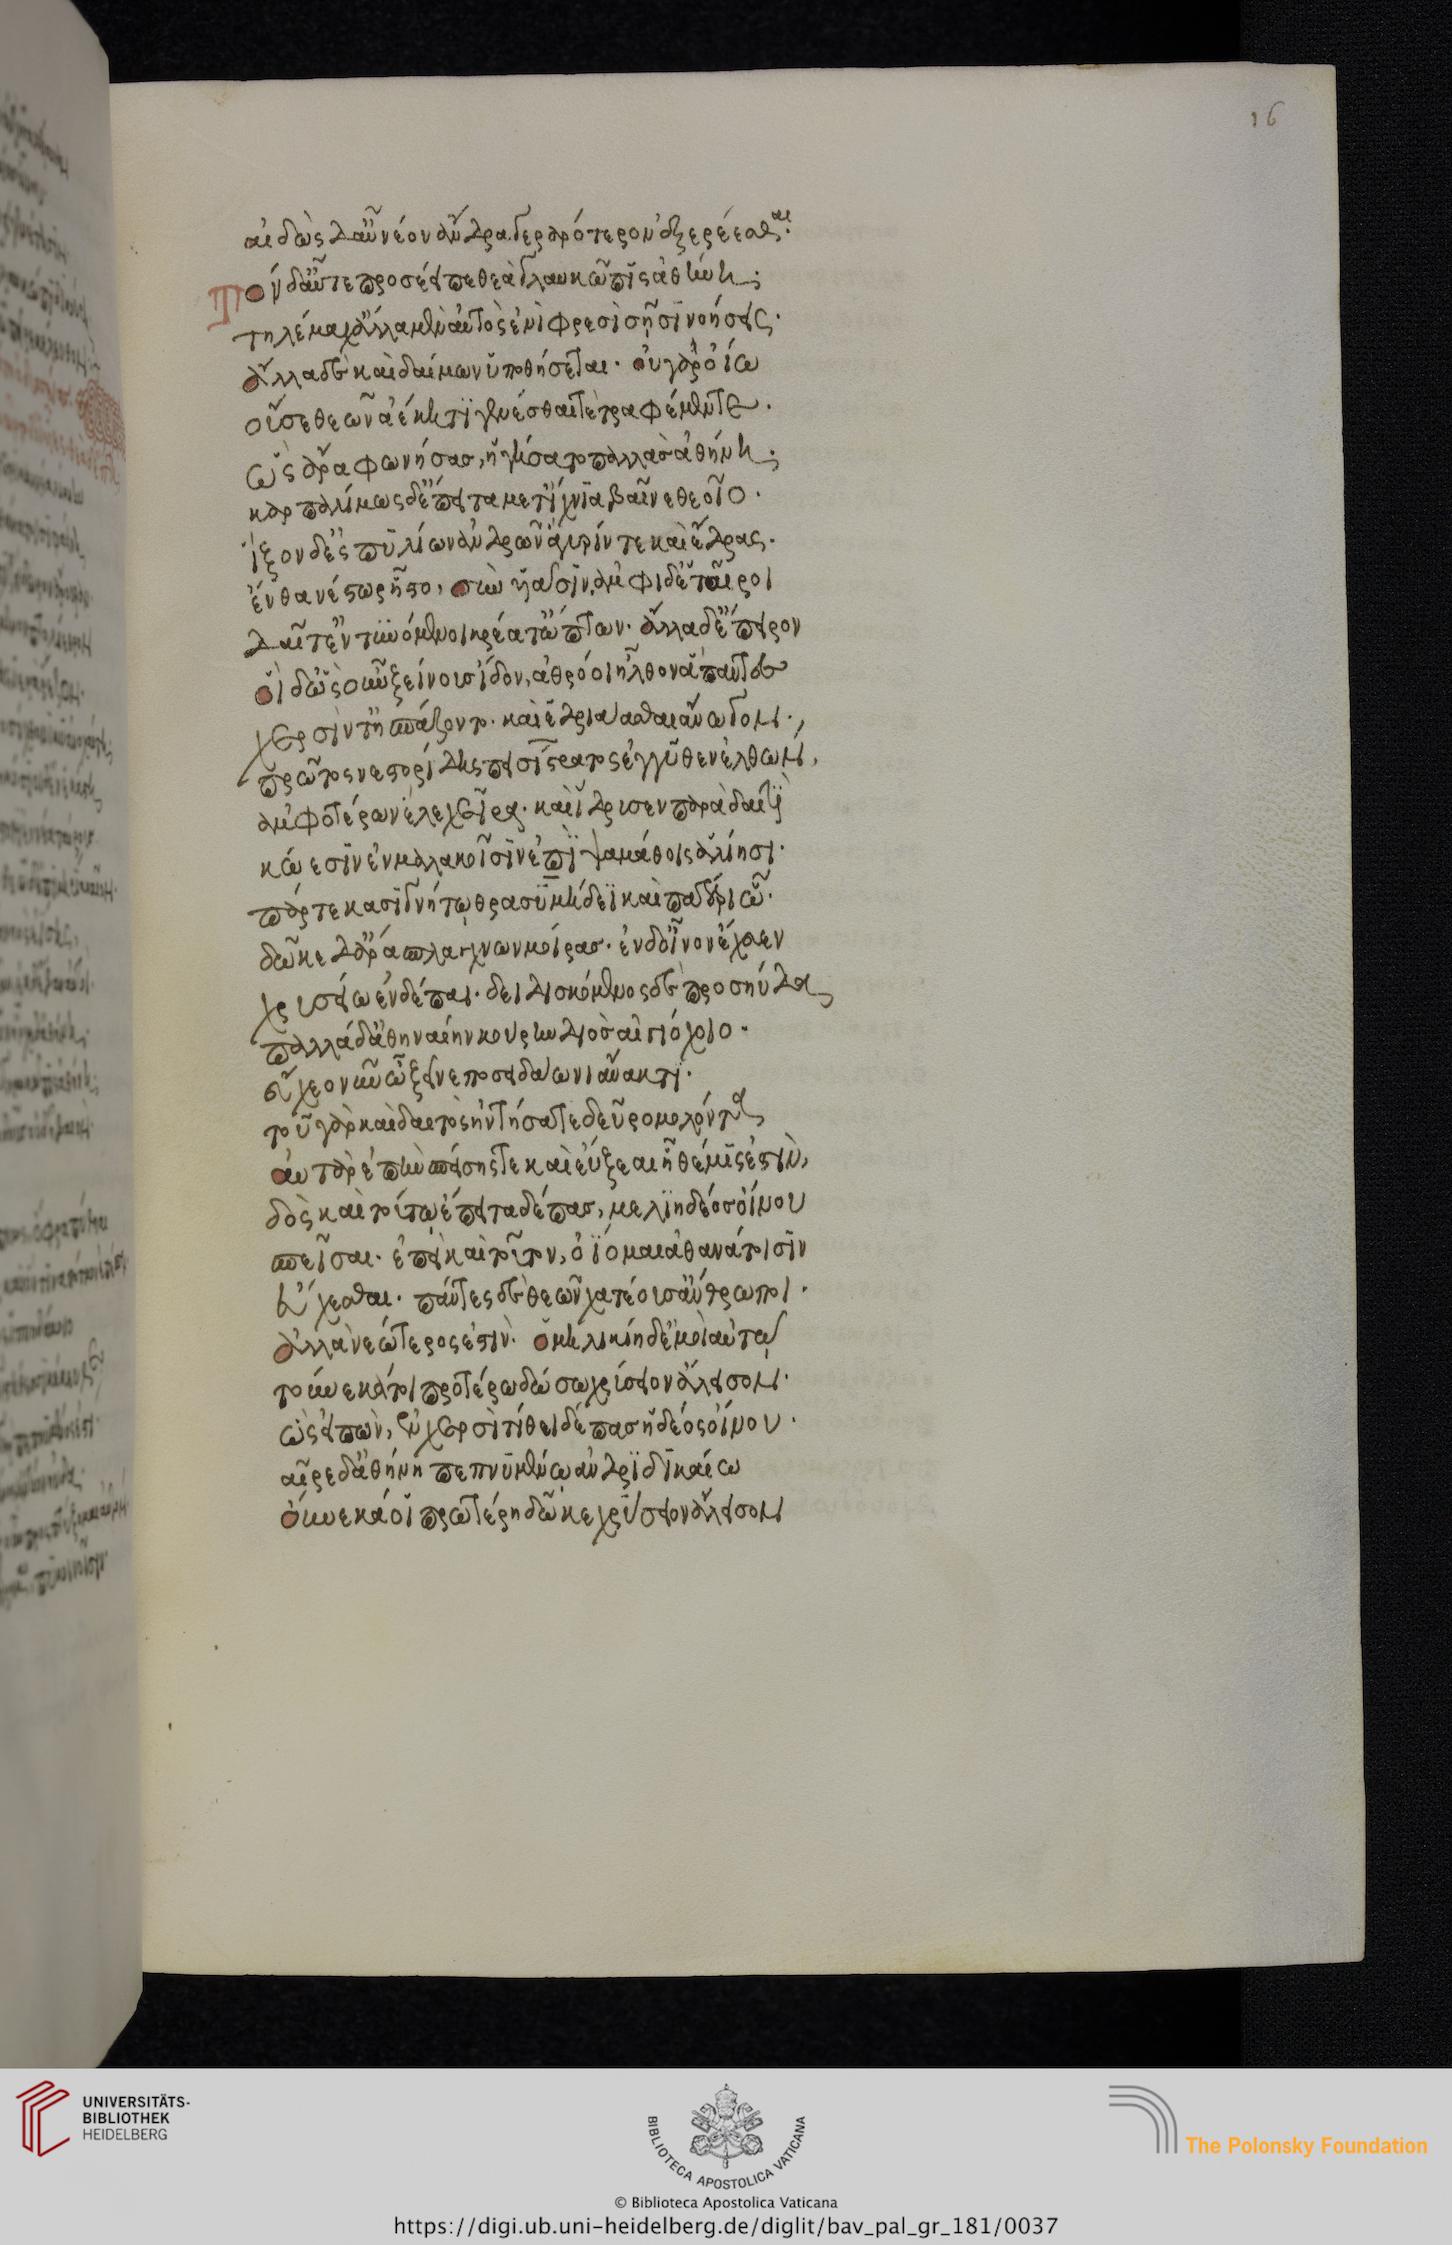 16
αἰδὼς δ' αὖ νέον ἄνδρα γεραίτερον ἐξερέεσθαι·
Τὸν δ' αὖτε προσέειπε θεὰ γλαυκῶπις ἀθήνη·
τηλέμαχ' ἄλλα μὲν αὐτὸς ἐνὶ φρεσὶ σῇσι νοήσεις·
ἄλλα δὲ καὶ δαίμων ὑποθήσεται· οὐ γὰρ ὀίω
οὔ σε θεῶν ἀέκητι γενέσθαι τὲ τραφέμεν τε·
ὣς ἄρα φωνήσασ, ἡγήσατο παλλὰσ ἀθήνη·
καρπαλίμως ὃ δ' ἔπειτα μετ' ἴχνια βαῖνε θεοῖο·
ἷξον δ' ἐς πυλίων ἀνδρῶν ἄγυρίν τε καὶ ἕδρας·
ἔνθα νέστωρ ἧστο, σὺν υἱάσιν, ἀμφὶ δ' ἑταῖροι
δαῖτ' ἐντυνόμενοι κρέα τ' ὤπτων· ἄλλα δ' ἔπειρον
οἱ δ' ὡς οὖν ξείνους ἴδον, ἀθρόοι ἦλθον ἅπαντες
χερσίν τ' ἠσπάζοντο· καὶ ἑδριάασθαι ἄνωγον·,
πρῶτος νεστορίδης πεισίστρατος ἐγγύθεν ἐλθὼν,
ἀμφοτέρων ἕλε χεῖρα· καὶ ἵδρυσεν παρὰ δαιτὶ
κώεσιν ἐν μαλακοῖσιν ἐπὶ ψαμάθοις ἁλίησι·
πάρ τε κασιγνήτω θρασυμήδεϊ καὶ πατέρι ᾧ·
δῶκε δ' ἄρα σπλάγχνων μοίρασ· ἐν δ' οἶνον ἔχευεν
χρυσείω ἐν δέπαι· δειδισκόμενος δὲ προσηύδα
παλλάδ' ἀθηναίην κούρην διὸσ αἰγιόχοιο·
εὔχεο νῦν ὦ ξεῖνε ποσειδάωνι ἄνακτι·
τοῦ γὰρ καὶ δαιτὸς ἠντήσατε δεῦρο μολόντες
αὐτὰρ ἐπὴν σπείσης τε καὶ εὔξεαι ἣ θέμις ἐστὶν,
δὸς καὶ τούτω ἔπειτα δέπασ, μελιηδέοσ οἴνου
σπεῖσαι· ἐπεὶ καὶ τοῦτον, ὀίομαι ἀθανάτοισιν
εὔχεσθαι· πάντες δὲ θεῶν χατέουσ' ἄνθρωποι·
ἀλλὰ νεώτερος ἐστὶν· ὁμηλικίη δ' ἐμοὶ αὐτῶ
τούνεκά τοι προτέρω δώσω χρύσειον ἄλεισον·
ὣς εἰπὼν, ἐν χερσὶ τίθει δέπας ἡδέος οἴνου·
χαῖρε δ' ἀθήνη πεπνυμένω ἀνδρὶ δικαίω
οὕνεκά οἱ προτέρη δῶκε χρύσειον ἄλεισον
UNIVERSITÄTS-
BIBLIOTHEK
HEIDELBERG
BIBLIOTECA APOSTOLICA VATICANA
The Polonsky Foundation
© Biblioteca Apostolica Vaticana
https://digi.ub.uni-heidelberg.de/diglit/bav_pal_gr_181/0037